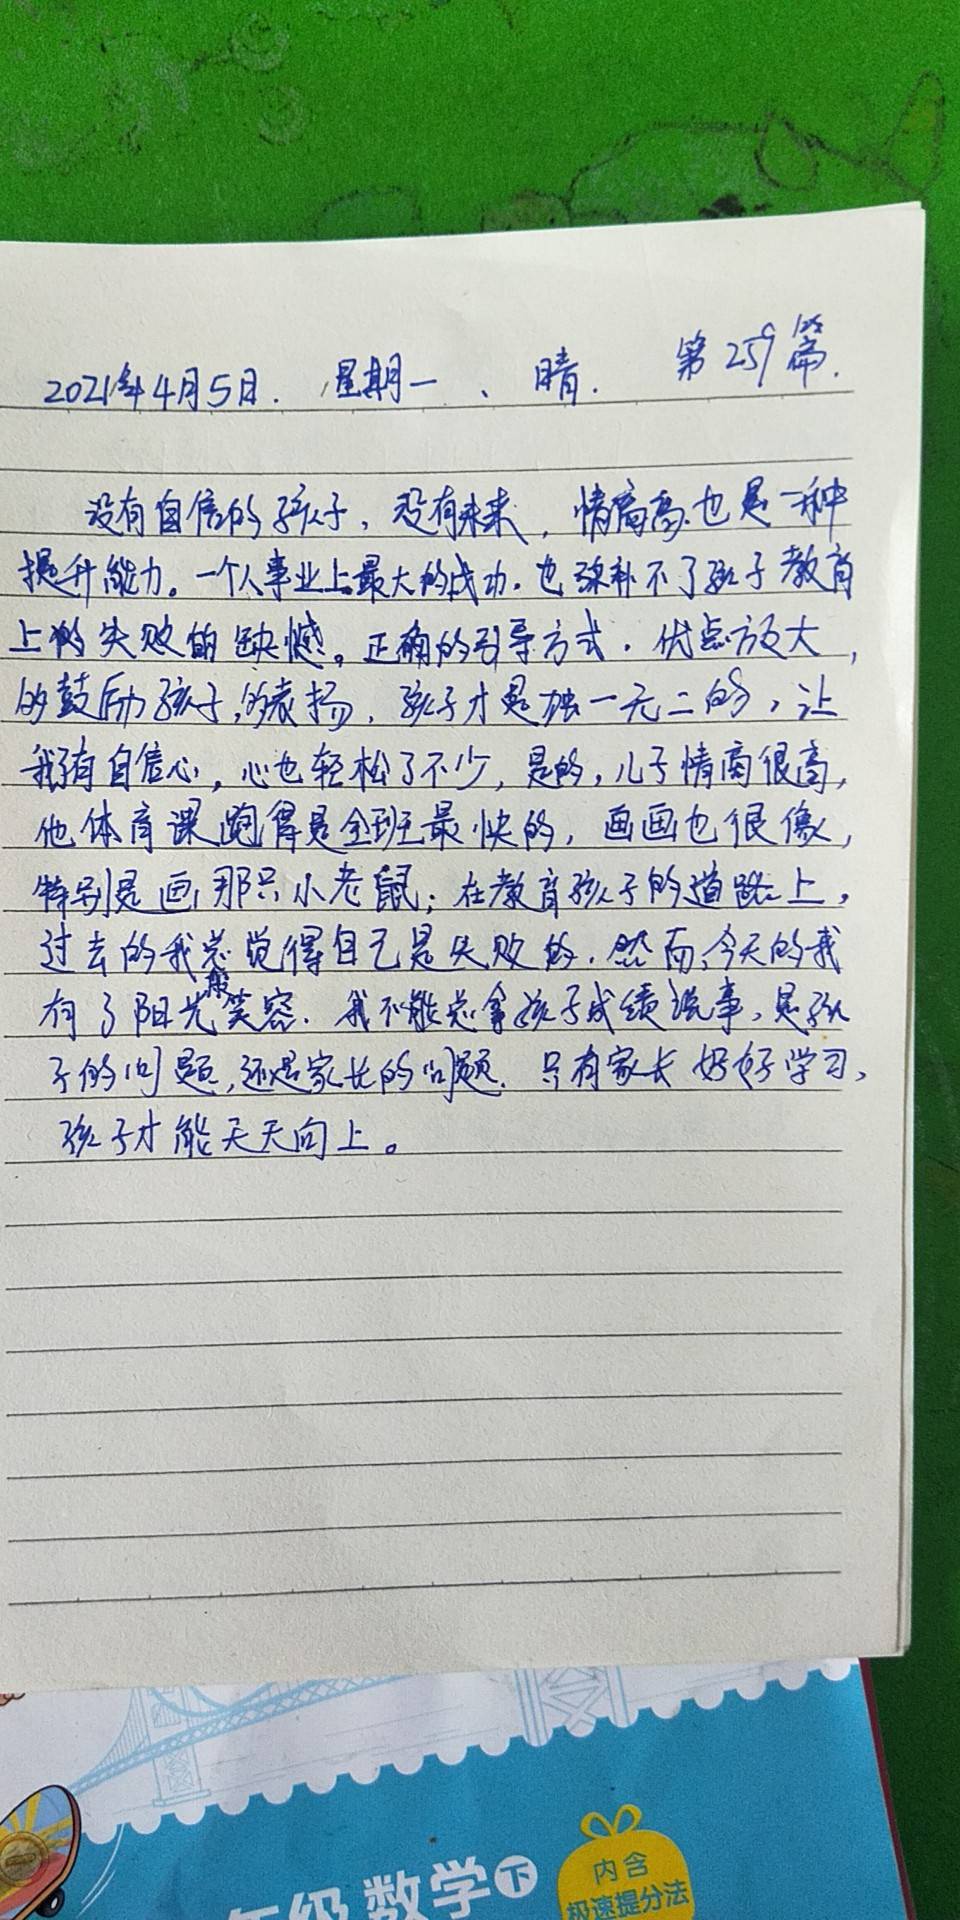 2021年4月5日. 星期一、晴. 第259篇.
没有自信的孩子,没有未来,情商高也是一种
提升能力。一个人事业上最大的成功.也弥补不了孩子教育
上的失败的缺憾。正确的引导方式.优点放大,
的鼓励孩子,的表扬,孩子才是独一无二的,让
我有自信心,心也轻松了不少,是的,儿子情商很高,
他体育课跑得是全班最快的,画画也很像,
特别是画那只小老鼠;在教育孩子的道路上,
过去的我总觉得自己是失败的.然而今天的我
有了阳光般笑容.我不能总拿孩子成绩说事、是孩
子的问题,还是家长的问题.只有家长好好学习,
孩子才能天天向上。
年级数学下
内含
极速提分法